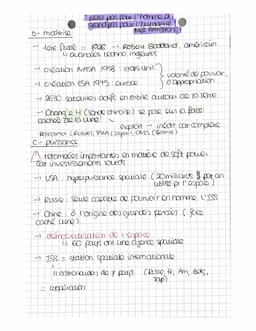 "petit pas pour l'homme et
grand pas pour l'humanité"
Neil Armstrong
b- maîtrise
→ 1ère fusée = 1926 → Robert Goddard, américain
↳ avancées techno majeures
→ création NASA 1958 : états-unis
→ création ESA 1975 : europe
volonté de pouvoir, d'appropriation
→ satellites actifs en orbite autour de la terre
→ Chang'e 4 (sonde chinoise) se pose sur la face
cachée de la lune
exploit → inédit car complexe
c- puissance
retombées importantes en matière de soft power
car investissements lourds
→ USA : hyperpuissance spatiale (milliards $ par an
→ Russie : seule capable de pourvoir en homme l'ISS
→ Chine : à l'origine des grandes percées (face
cachée lune)
→ démocratisation de l'espace
↳ 60 pays ont une agence spatiale
→ ISS = station spatiale internationale
↳ astronautes de 7 pays (Russe, Fr, Am,
Jap)
= coopération